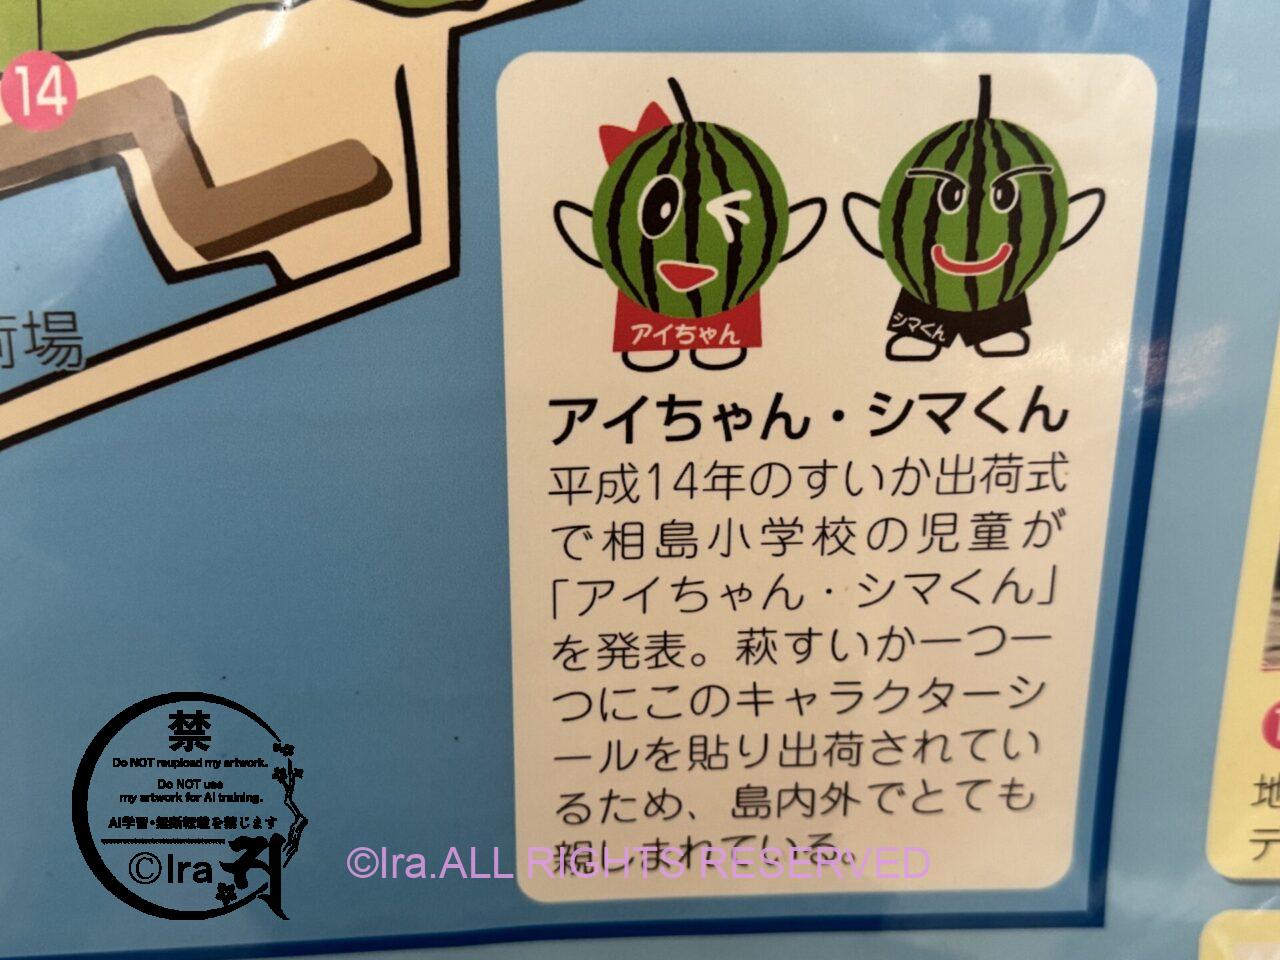 14
荷場
アイちゃん
シマくん
アイちゃん・シマくん
平成14年のすいか出荷式
で相島小学校の児童が
「アイちゃん・シマくん」
を発表。萩すいか一つ一
つにこのキャラクターシ
ールを貼り出荷されてい
るため、島内外でとても
親しまれている。
禁
Do NOT reupload my artwork.
Do NOT use
my artwork for AI training.
AI学習・無断転載を禁じます
©Ira
©Ira.ALL RIGHTS RESERVED
地
テ